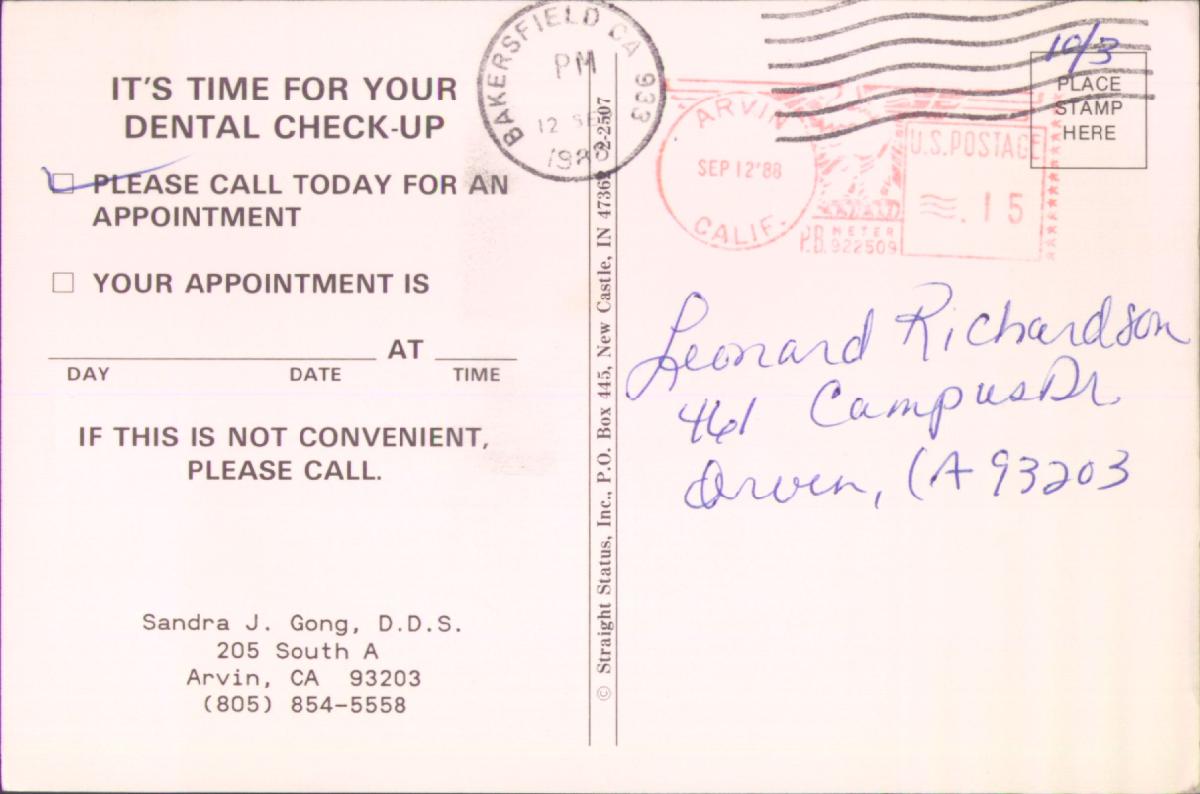 IT'S TIME FOR YOUR
DENTAL CHECK-UP
PLEASE CALL TODAY FOR AN
APPOINTMENT
YOUR APPOINTMENT IS
AT
DAY DATE TIME
IF THIS IS NOT CONVENIENT,
PLEASE CALL.
Sandra J. Gong, D.D.S.
205 South A
Arvin, CA 93203
(805) 854-5558
© Straight Status, Inc., P.O. Box 445, New Castle, IN 47362 C2-2507
BAKERSFIELD CA 933
PM
12
ARVIN
SEP 12'88
CALIF.
P.B. METER
922509
U.S. POSTAGE
.15
10/3
PLACE
STAMP
HERE
Leonard Richardson
461 Campus Dr
Arvin, CA 93203